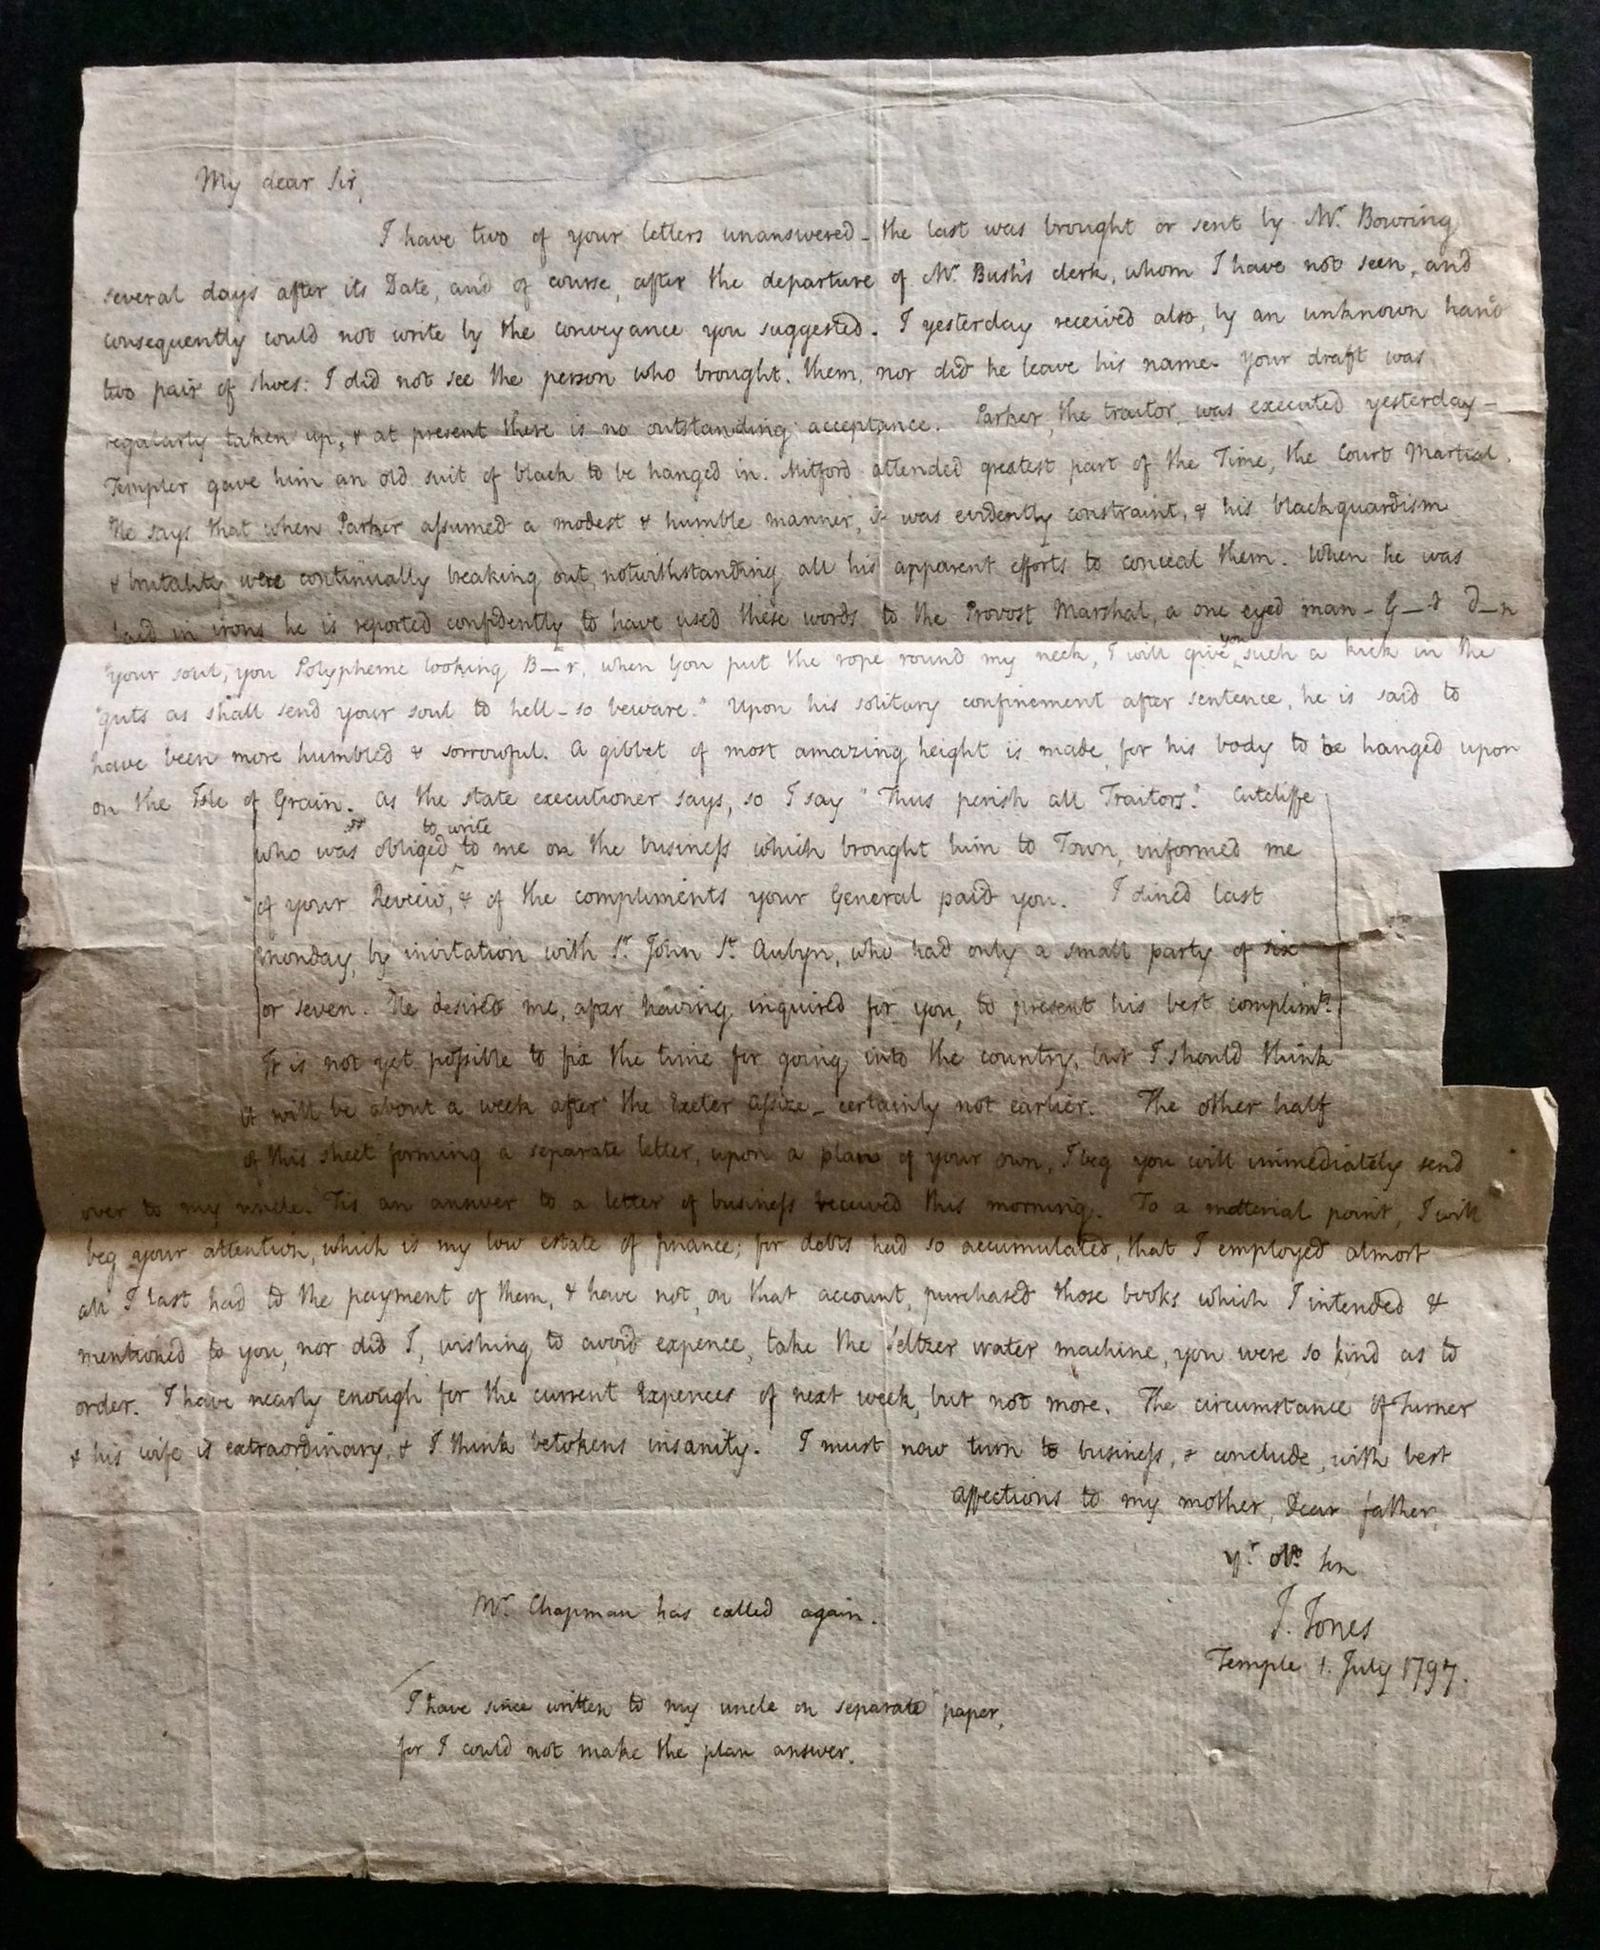 My dear Sir,
I have two of your letters unanswered – the last was brought or sent by Mr. Bowring
several days after its Date, and of course, after the departure of Mr. Bush's clerk, whom I have not seen, and
consequently could not write by the conveyance you suggested. I yesterday received also, by an unknown hand
two pair of shoes: I did not see the person who brought them, nor did he leave his name. Your draft was
regularly taken up, & at present there is no outstanding acceptance. Parker, the traitor, was executed yesterday –
Templer gave him an old suit of black to be hanged in. Mitford attended greatest part of the Time, the Court Martial.
He says that when Parker assumed a modest & humble manner, it was evidently constraint, & his blackguardism
& brutality were continually breaking out, notwithstanding all his apparent efforts to conceal them. When he was
laid in irons he is reported confidently to have used these words to the Provost Marshal, a one eyed man – G–d D–n
"your soul, you Polypheme looking B––r, when you put the rope round my neck, I will give you such a kick in the
"guts as shall send your soul to hell – so beware." Upon his solitary confinement after sentence, he is said to
have been more humbled & sorrowful. A gibbet of most amazing height is made for his body to be hanged upon
on the Isle of Grain. As the state executioner says, so I say "Thus perish all Traitors." Cutcliffe
who was obliged to write to me on the business which brought him to Town, informed me
of your Review, & of the compliments your General paid you. I dined last
Monday, by invitation with Sr. John St. Aubyn, who had only a small party of six
or seven. He desired me, after having inquired for you, to present his best complimts.
It is not yet possible to fix the time for going into the country, but I should think
it will be about a week after the Exeter Assize – certainly not earlier. The other half
of this sheet forming a separate letter, upon a plan of your own, I beg you will immediately send
over to my uncle. Tis an answer to a letter of business received this morning. To a material point, I will
beg your attention, which is my low estate of finance; for debts had so accumulated, that I employed almost
all I last had to the payment of them, & have not, on that account, purchased those books which I intended &
mentioned to you, nor did I, wishing to avoid expence, take the Seltzer water machine, you were so kind as to
order. I have nearly enough for the current Expences of next week, but not more. The circumstance of Turner
& his wife is extraordinary, & I think betokens insanity. I must now turn to business, & conclude, with best
affections to my mother, Dear father,
yr. obt. son
J. Jones
Temple 1. July 1797.
Mr. Chapman has called again.
I have since written to my uncle on separate paper,
for I could not make the plan answer.